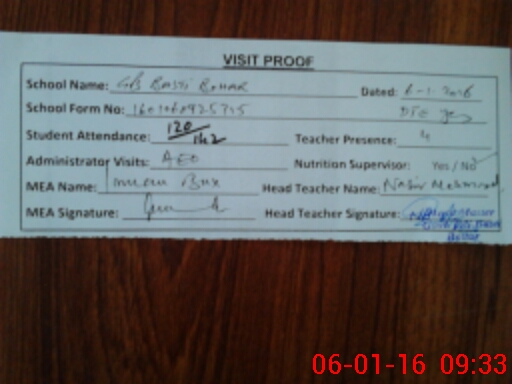 VISIT PROOF
School Name: GB Basti Bohar Dated: 6-1-2016
School Form No:
Student Attendance: 120/142 Teacher Presence: 4
Administrator Visits: AEO Nutrition Supervisor: Yes / No
MEA Name: Bux Head Teacher Name: Nasir Mehmood
MEA Signature: Head Teacher Signature:
06-01-16 09:33